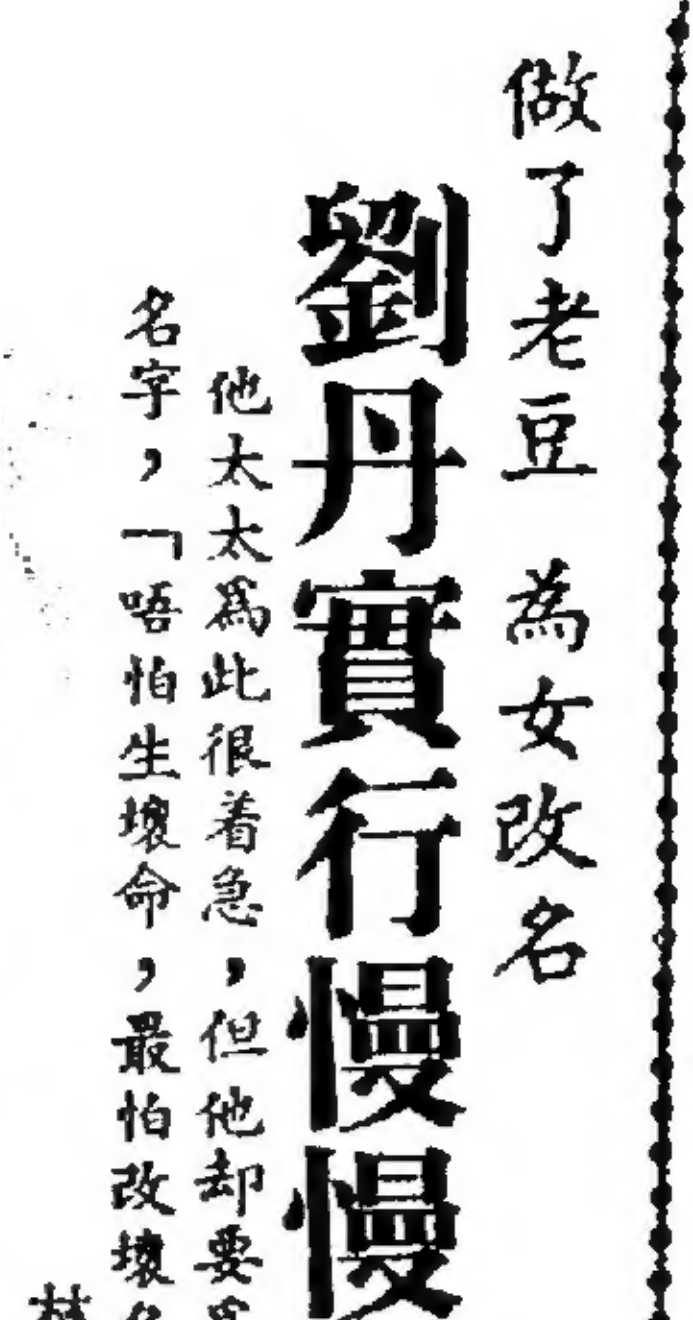 做了老豆 為女改名
劉丹實行慢慢
他太太為此很着急，但他却要
名字，「唔怕生壞命，最怕改壞